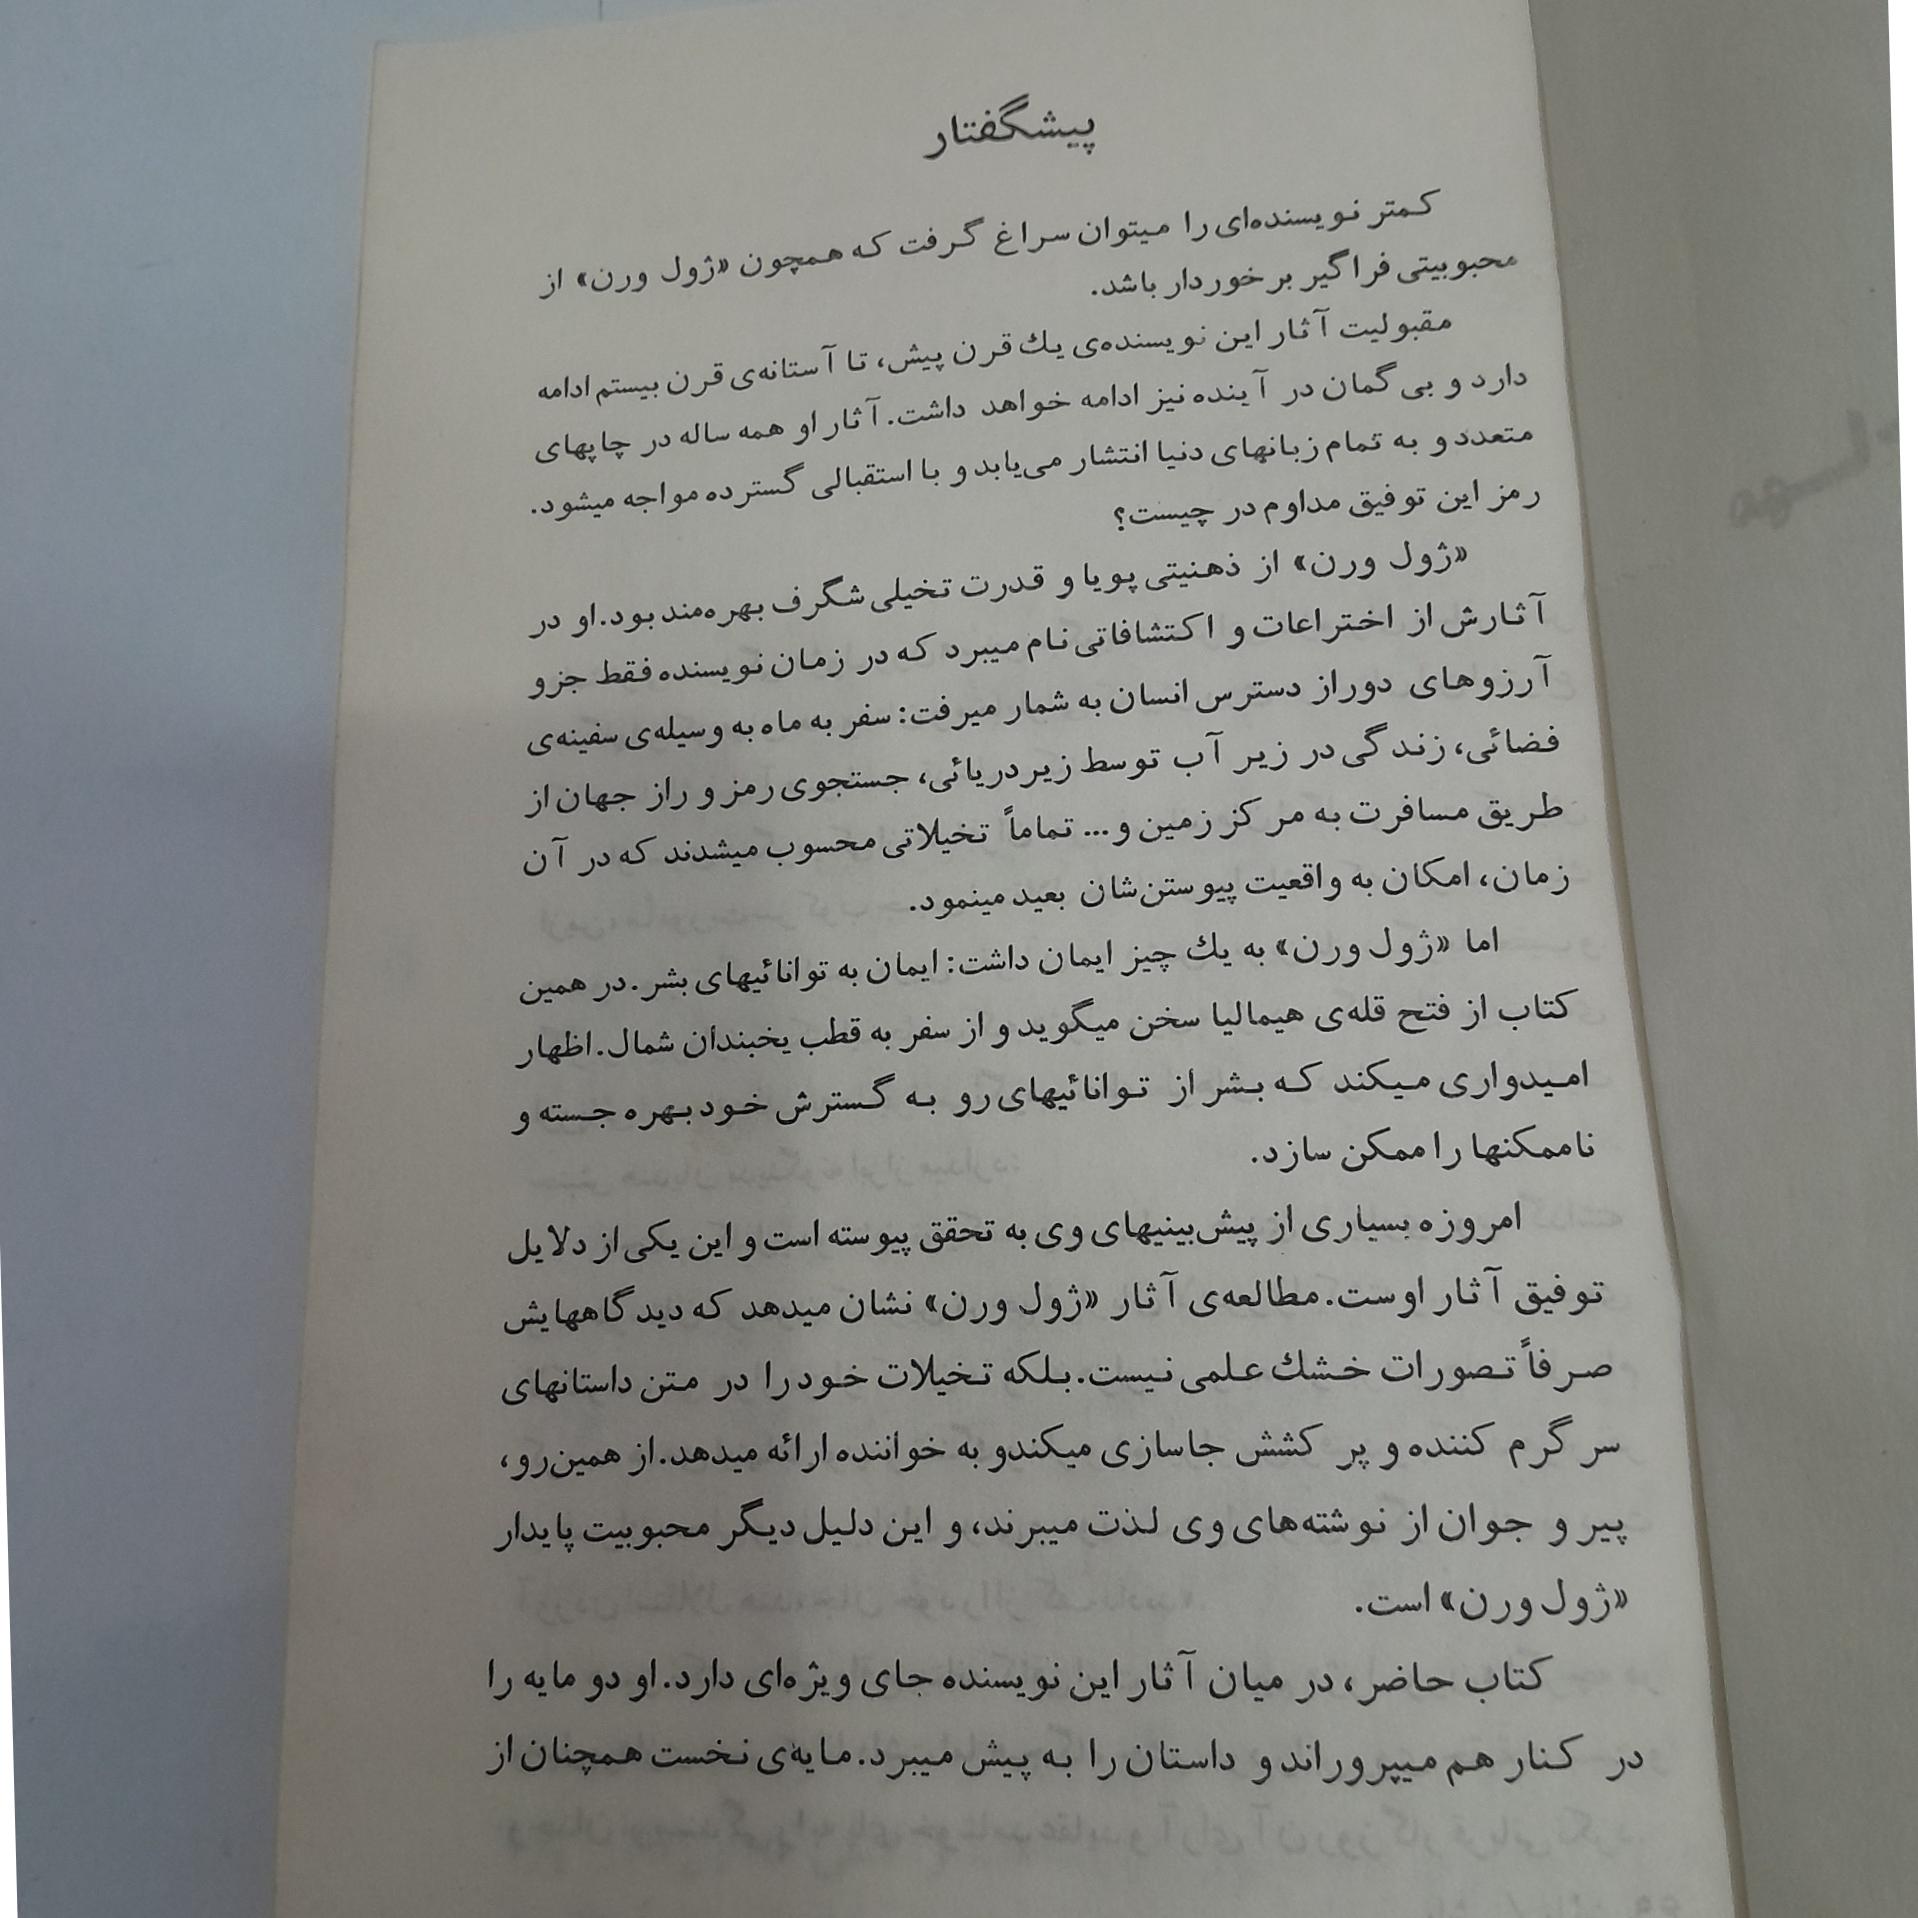 پیشگفتار
کمتر نویسنده‌ای را میتوان سراغ گرفت که همچون «ژول ورن» از
محبوبیتی فراگیر برخوردار باشد.
مقبولیت آثار این نویسنده‌ی یك قرن پیش، تا آستانه‌ی قرن بیستم ادامه
دارد و بی گمان در آینده نیز ادامه خواهد داشت. آثار او همه ساله در چاپهای
متعدد و به تمام زبانهای دنیا انتشار می‌یابد و با استقبالی گسترده مواجه میشود.
رمز این توفیق مداوم در چیست؟
«ژول ورن» از ذهنیتی پویا و قدرت تخیلی شگرف بهره‌مند بود. او در
آثارش از اختراعات و اکتشافاتی نام میبرد که در زمان نویسنده فقط جزو
آرزوهای دور از دسترس انسان به شمار میرفت: سفر به ماه به وسیله‌ی سفینه‌ی
فضائی، زندگی در زیر آب توسط زیردریائی، جستجوی رمز و راز جهان از
طریق مسافرت به مرکز زمین و... تماماً تخیلاتی محسوب میشدند که در آن
زمان، امکان به واقعیت پیوستن‌شان بعید مینمود.
اما «ژول ورن» به یك چیز ایمان داشت: ایمان به توانائیهای بشر. در همین
کتاب از فتح قله‌ی هیمالیا سخن میگوید و از سفر به قطب یخبندان شمال. اظهار
امیدواری میکند که بشر از توانائیهای رو به گسترش خود بهره جسته و
ناممکنها را ممکن سازد.
امروزه بسیاری از پیش‌بینیهای وی به تحقق پیوسته است و این یکی از دلایل
توفیق آثار اوست. مطالعه‌ی آثار «ژول ورن» نشان میدهد که دیدگاههایش
صرفاً تصورات خشك علمی نیست. بلکه تخیلات خود را در متن داستانهای
سرگرم کننده و پر کشش جاسازی میکند و به خواننده ارائه میدهد. از همین‌رو،
پیر و جوان از نوشته‌های وی لذت میبرند، و این دلیل دیگر محبوبیت پایدار
«ژول ورن» است.
کتاب حاضر، در میان آثار این نویسنده جای ویژه‌ای دارد. او دو مایه را
در کنار هم میپروراند و داستان را به پیش میبرد. مایه‌ی نخست همچنان از